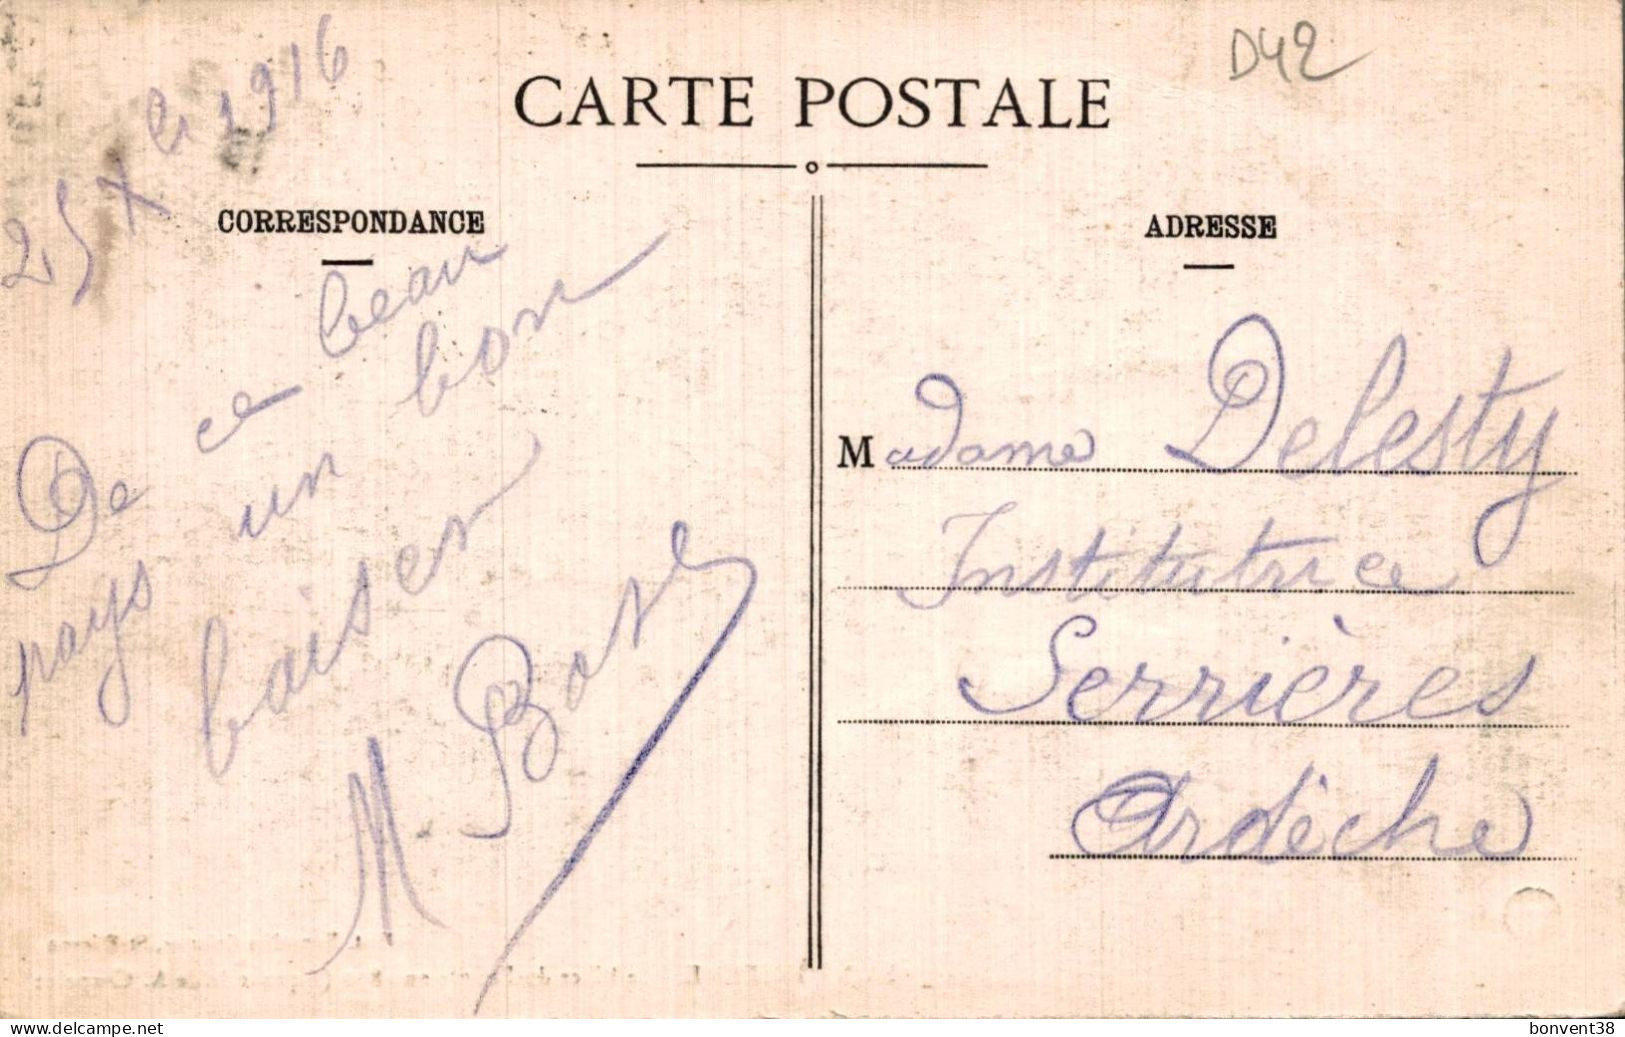 D42
CARTE POSTALE
25 X bre 1916
CORRESPONDANCE
De ce beau
pays un bon
baiser
M. Bost
ADRESSE
Madame Delesty
Institutrice
Serrières
Ardèche
www.delcampe.net
bonvent38